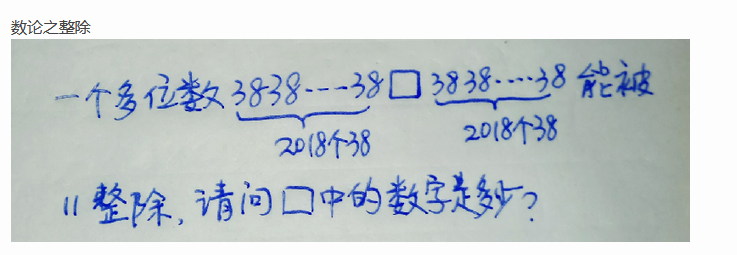 数论之整除
一个多位数 3838····38 □ 3838····38 能被
2018个38 2018个38
11整除, 请问□中的数字是多少?